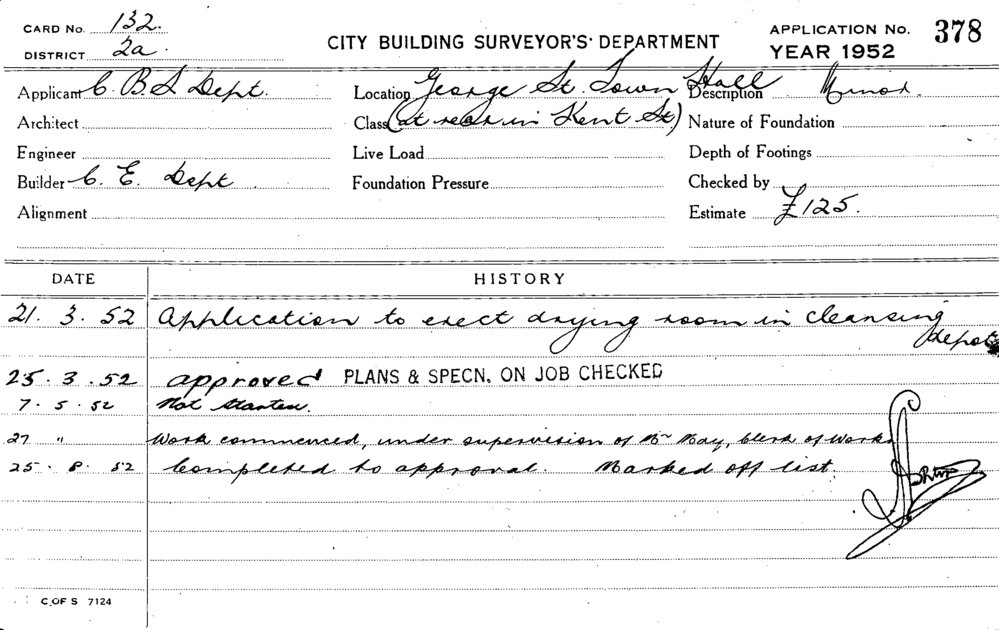 CARD No. 132.
DISTRICT 2a.
CITY BUILDING SURVEYOR'S DEPARTMENT
APPLICATION No. 378
YEAR 1952
Applicant C. B. S. Dept. Location George St. Town Hall Description Minor.
Architect Class (at rear in Kent St) Nature of Foundation
Engineer Live Load Depth of Footings
Builder C. E. Dept Foundation Pressure Checked by
Alignment Estimate £125.
DATE HISTORY
21. 3. 52 Application to erect drying room in cleansing
depot
25. 3. 52 approved PLANS & SPECN. ON JOB CHECKED
7. 5. 52 Not Started.
27 " Work commenced, under supervision of Mr May, Clerk of Works
25. 8. 52 Completed to approval. Marked off list.
C. OF S 7124